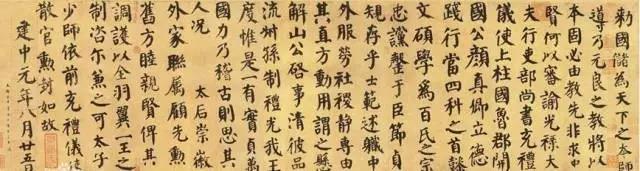 勑國儲為天下之本師
導乃元良之教將以
本固必由教先非求
賢何以審諭光祿大
夫行吏部尚書充禮
儀使上柱國魯郡開
國公顏真卿立德
踐行當四科之首懿
文碩學為百氏之宗
忠讜罄于臣節貞
規存乎士範述職中
外服勞社稷靜專由
其直方動用謂之懸
解山公啓事清彼品
流叔孫制禮光我王
度惟是一有實貞萬
國力乃稽古則思其
人況 太后崇徽
外家聯屬顧先勳
舊方睦親賢俾其
調護以全羽翼一王之
制咨爾兼之可太子
少師依前充禮儀使
散官勳封如故
建中元年八月廿五